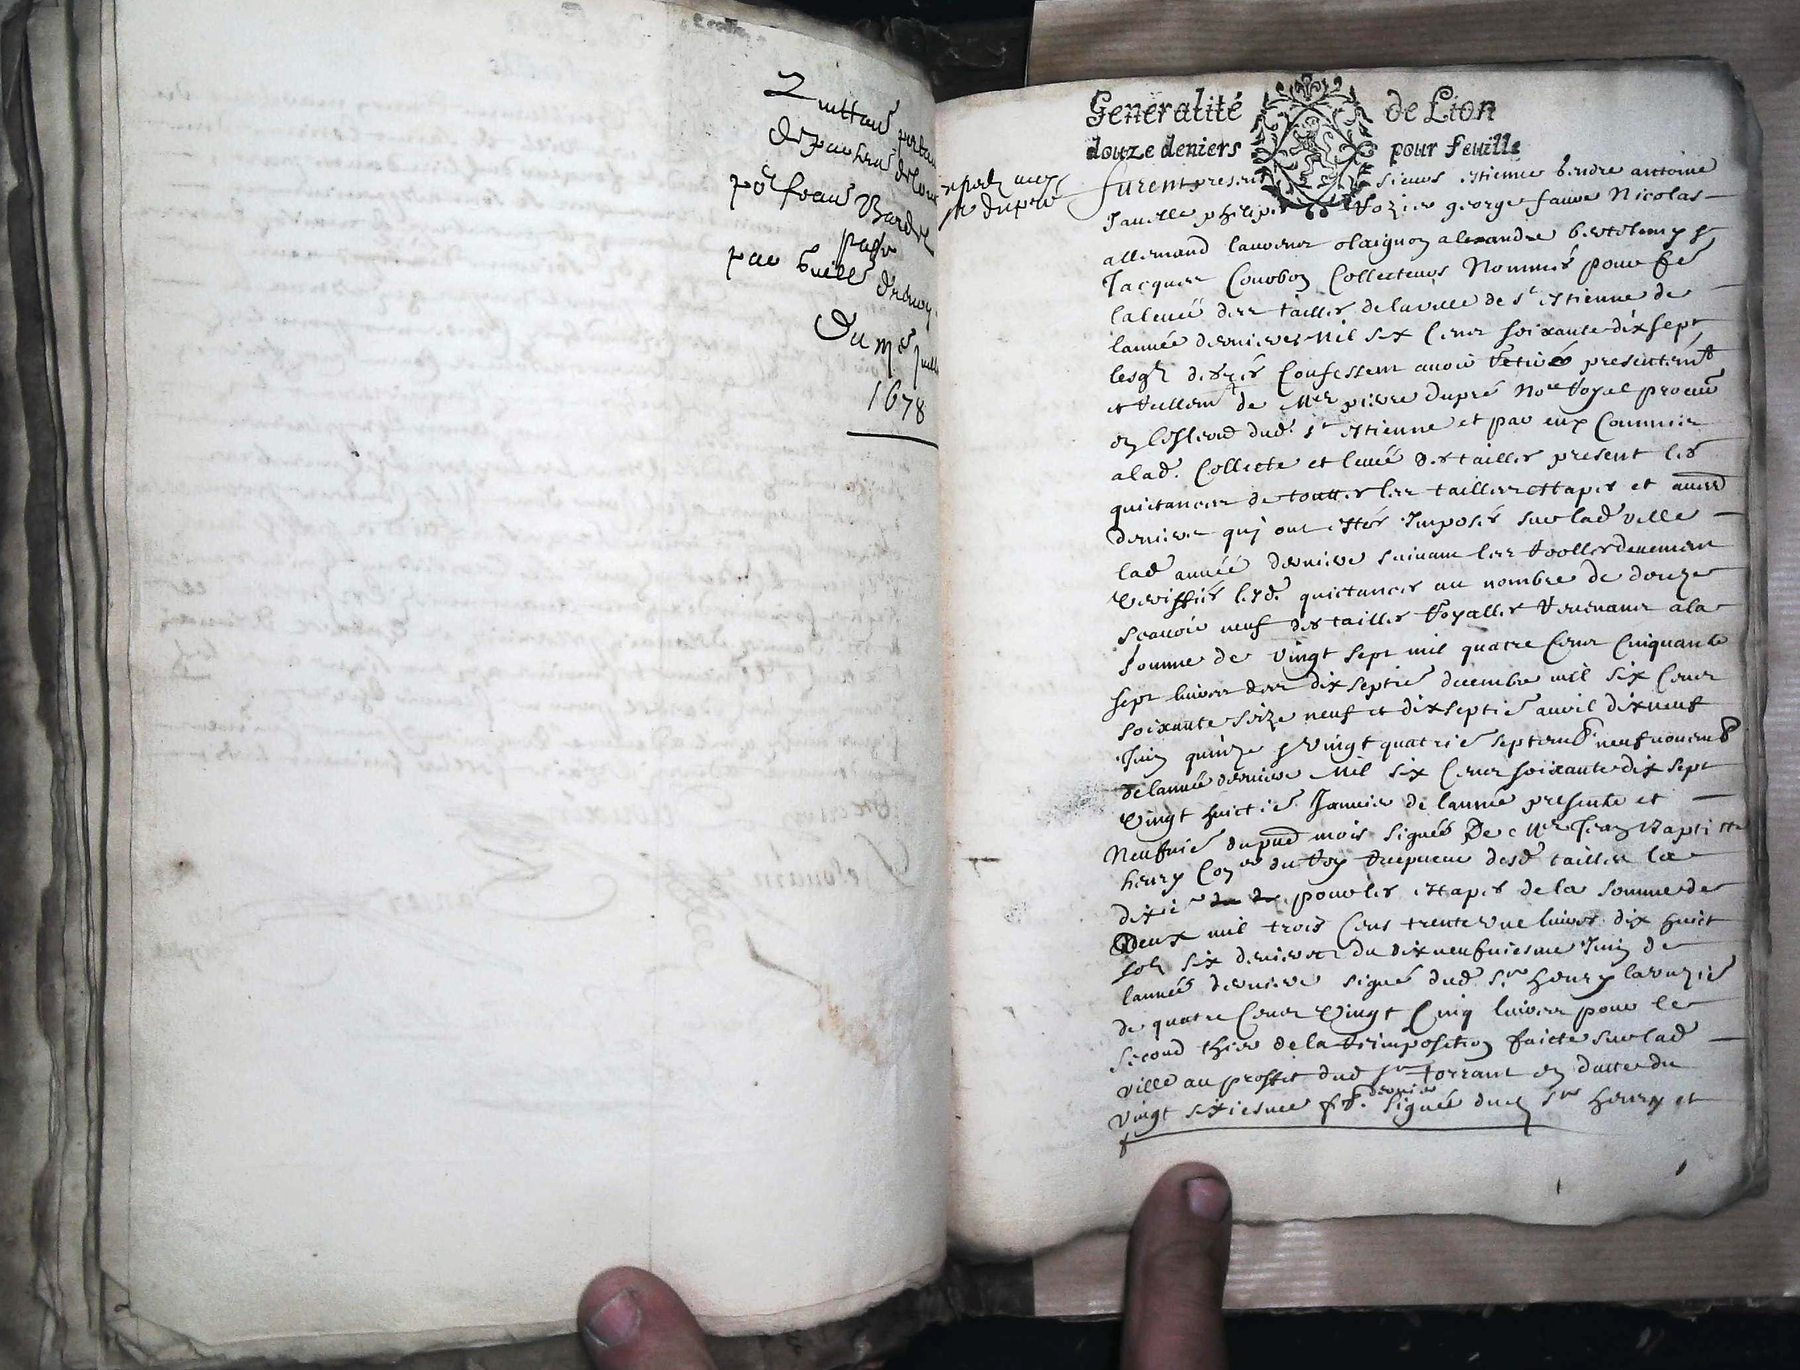 Quittance portant
por
par
du mes
1678
Generalité de Lion
douze deniers pour feuille
me dupré
furent presents sieurs estienne antoine
philipe george faure Nicolas
allemand laurens alexandre bertolemy &
Jacques Courbon Collecteurs Nommés pour
la levée des tailles de la ville de st estienne de
lannée derniere Mil six Cens soixante dix sept
lesqls Confessent avoir retiré presentemt
et reellemt de Mre pierre dupré Nore Royal procur
en lesleon dud. st estienne et par eux Commis
a lad. Collecte et levée des tailles present les
quictances de touttes les tailles estapes et autres
deniers qui ont estés Imposés sur lad ville
lad année derniere suivant les rolles deuement
veriffiés lesd. quictances au nombre de douze
scavoir neuf des tailles Royalles revenant a la
somme de vingt sept mil quatre Cens Cinquante
sept livres des dix septie decembre mil six Cens
soixante seize neuf et dixseptie avril dixneuf
Juin quinze & vingt quatrie septemb neuf novemb
de lannée derniere Mil six Cens soixante dix sept
vingt huictie Janvier de lannée presente et
Neufvie du pnt mois signées De Mre Jean Baptiste
henry Coner du Roy Recepveur desd tailles la
dixie pour les estapes de la somme de
Deux mil trois Cens trente une livres dix huict
sols six deniers du dix neufviesme Juin de
lannée derniere signé dud. sr henry la unzie
de quatre Cens vingt Cinq livres pour le
second thiers de la reimposition faicte sur lad
ville au proffit dud sr torrant en datte du
dernier
vingt sixiesme signée dud sr henry et